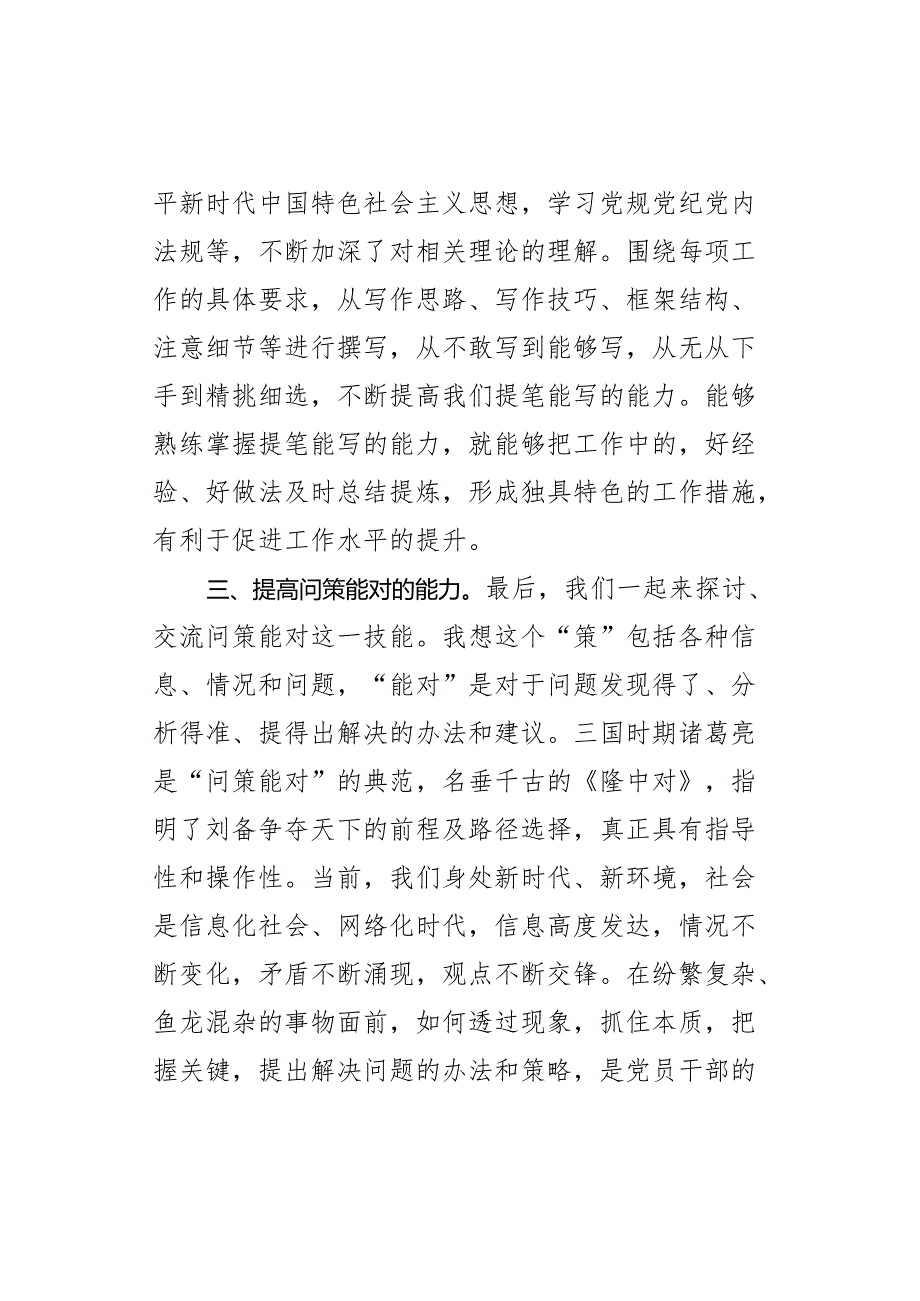 平新时代中国特色社会主义思想，学习党规党纪党内
法规等，不断加深了对相关理论的理解。围绕每项工
作的具体要求，从写作思路、写作技巧、框架结构、
注意细节等进行撰写，从不敢写到能够写，从无从下
手到精挑细选，不断提高我们提笔能写的能力。能够
熟练掌握提笔能写的能力，就能够把工作中的，好经
验、好做法及时总结提炼，形成独具特色的工作措施，
有利于促进工作水平的提升。
三、提高问策能对的能力。最后，我们一起来探讨、
交流问策能对这一技能。我想这个“策”包括各种信
息、情况和问题，“能对”是对于问题发现得了、分
析得准、提得出解决的办法和建议。三国时期诸葛亮
是“问策能对”的典范，名垂千古的《隆中对》，指
明了刘备争夺天下的前程及路径选择，真正具有指导
性和操作性。当前，我们身处新时代、新环境，社会
是信息化社会、网络化时代，信息高度发达，情况不
断变化，矛盾不断涌现，观点不断交锋。在纷繁复杂、
鱼龙混杂的事物面前，如何透过现象，抓住本质，把
握关键，提出解决问题的办法和策略，是党员干部的